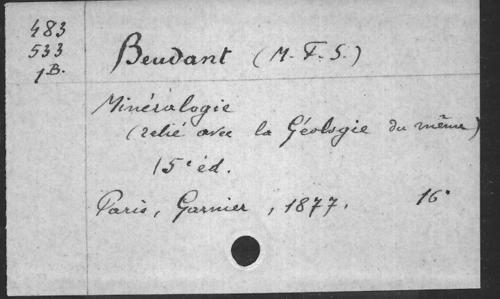 483
533
1B.
Beudant (M. F. S.)
Minéralogie
(relié avec la Géologie du même)
15e éd.
Paris, Garnier, 1877. 16°